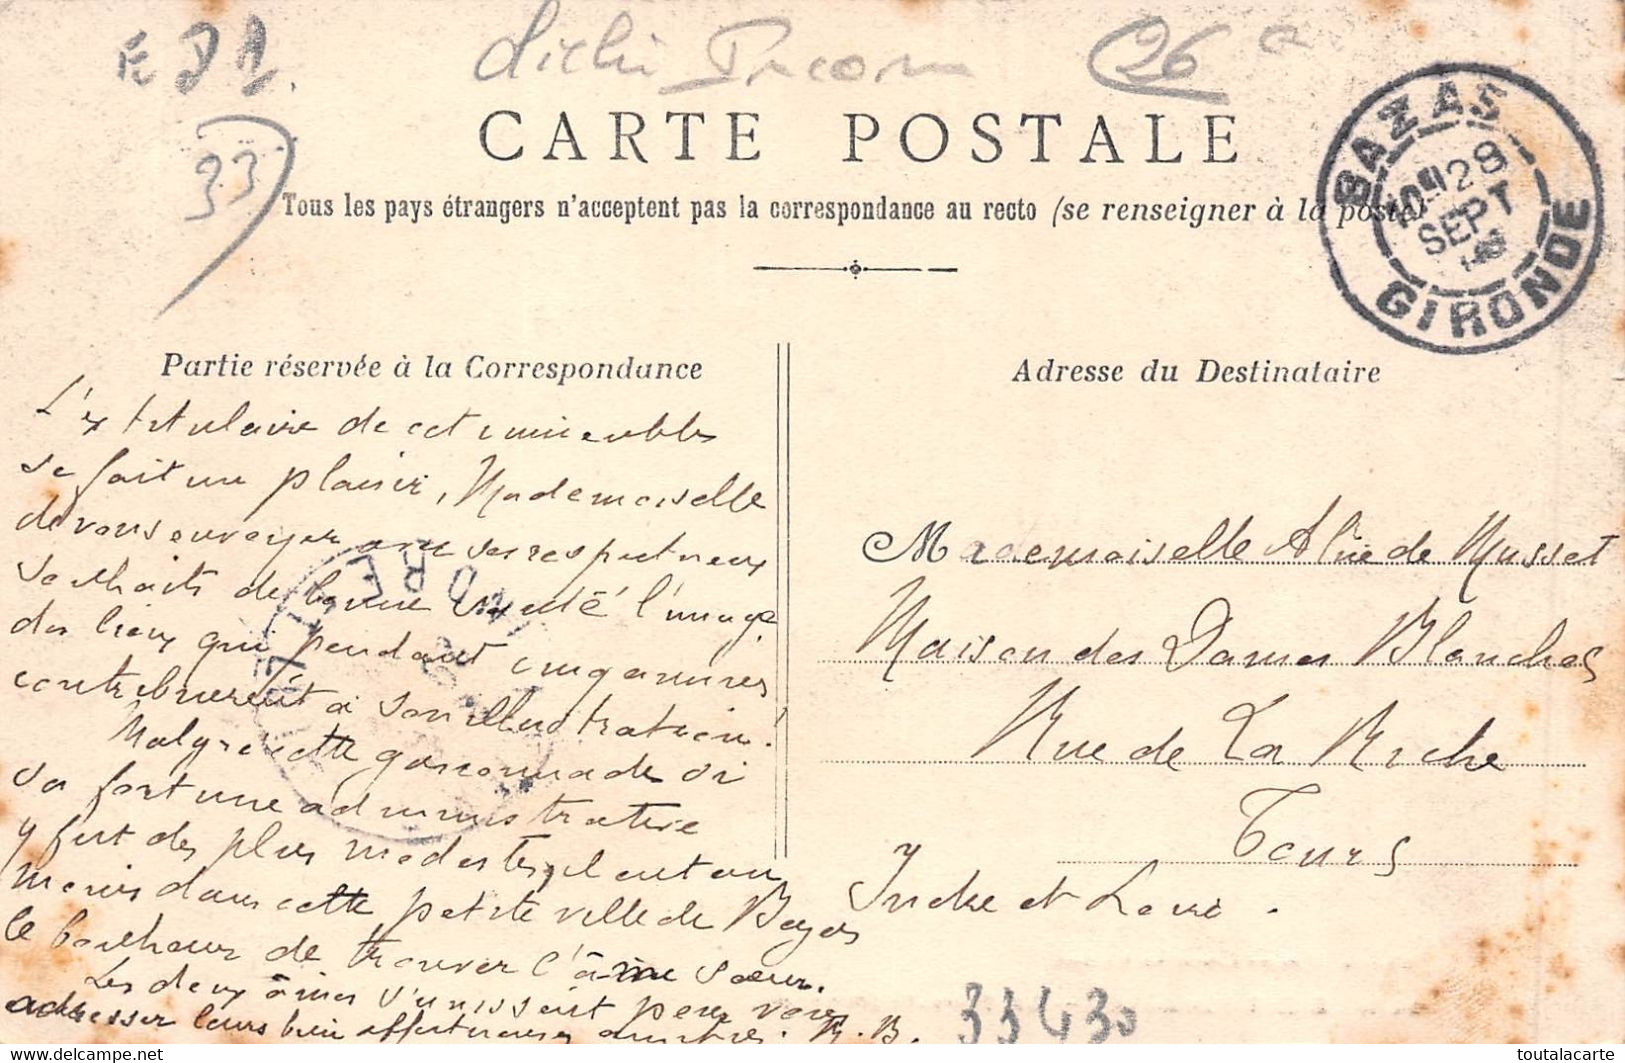 EDR.
33
26 a
CARTE POSTALE
Tous les pays étrangers n'acceptent pas la correspondance au recto (se renseigner à la poste)
BAZAS
28
SEPT
GIRONDE
Partie réservée à la Correspondance
Adresse du Destinataire
L'ex titulaire de cet immeuble
se fait un plaisir, Mademoiselle
de vous envoyer avec ses respectueux
souhaits de bonne santé l'image
des lieux qui pendant cinq années
contribuèrent à son illustration!
Malgré cette gasconnade si
sa fortune administrative
y fut des plus modestes, il eut au
moins dans cette petite ville de Bazas
le bonheur de trouver l'âme soeur.
Les deux âmes s'unissent pour vous
adresser leurs bien affectueuses amitiés. R. B.
Mademoiselle Aline de Musset
Maison des Dames Blanches
Rue de La Riche
Tours
Indre et Loire.
33430
toutalacarte